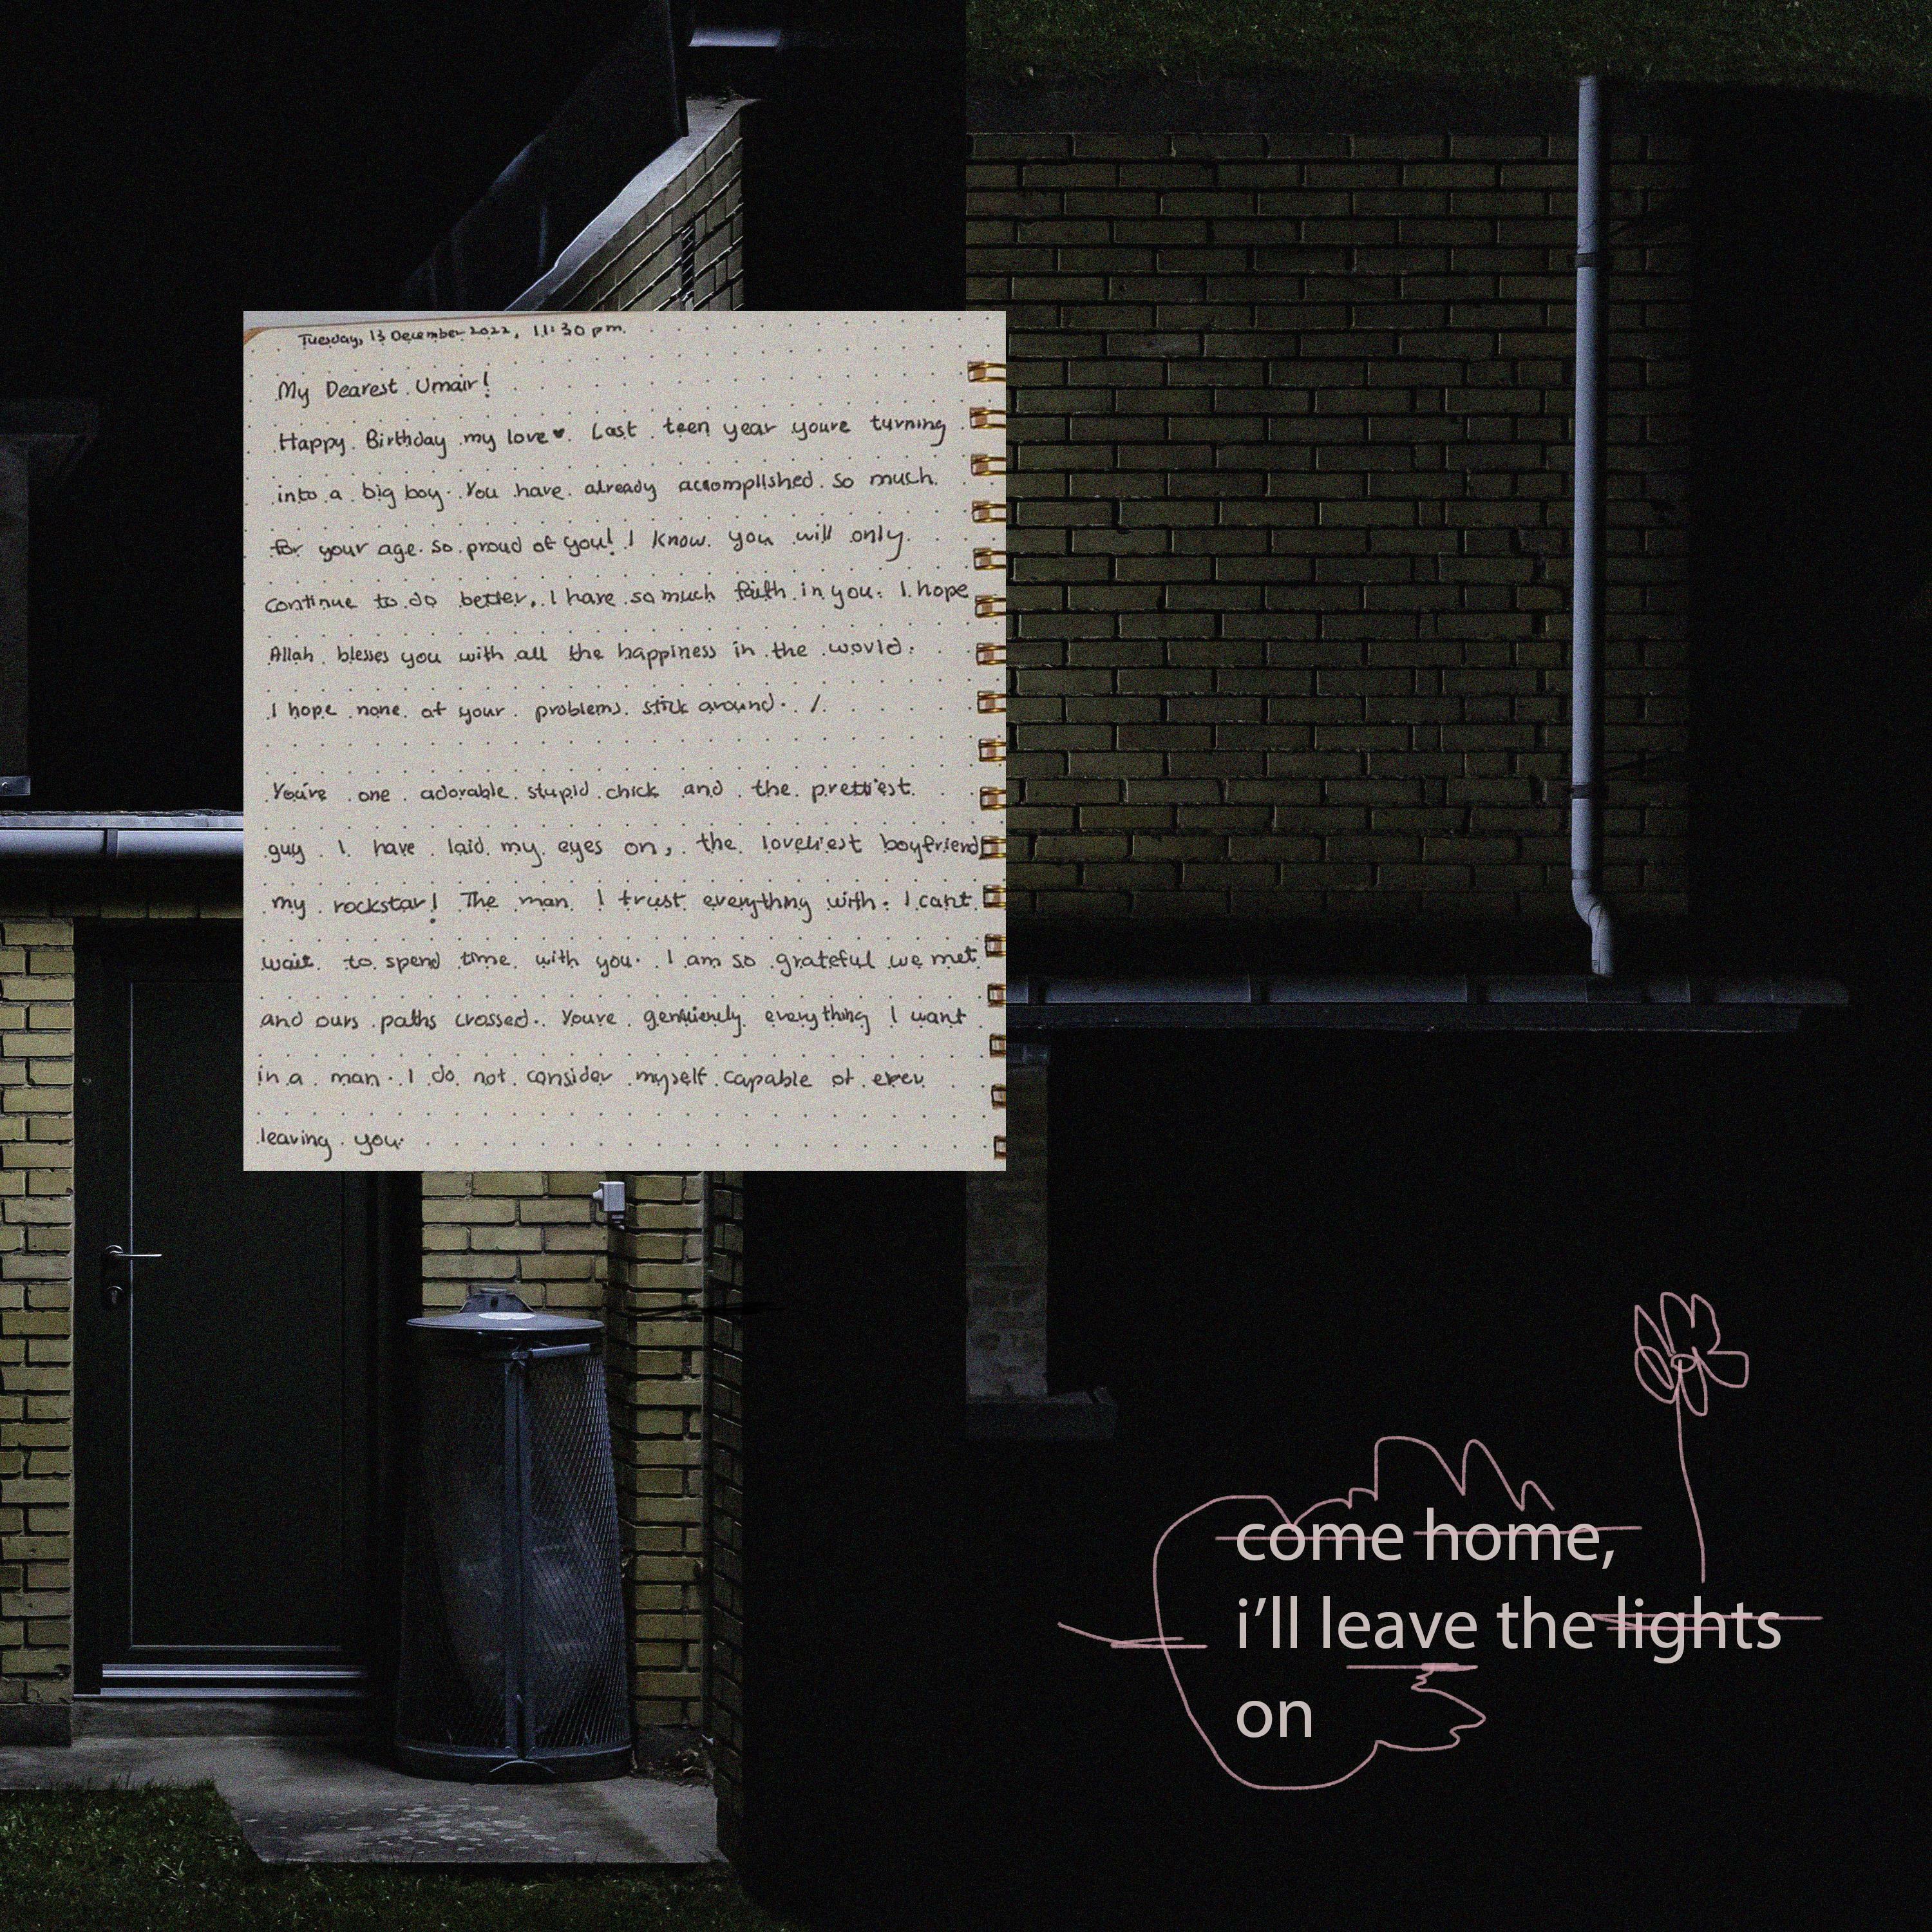 Tuesday, 13 December 2022, 11:30 pm.
My Dearest Umair!
Happy Birthday my love♥. Last teen year youre turning
into a big boy. You have already accomplished so much
for your age. So proud of you! I know you will only
continue to do better. I have so much faith in you. I hope
Allah blesses you with all the happiness in the world.
I hope none of your problems stick around. /.
You're one adorable stupid chick and the prettiest
guy I have laid my eyes on, the loveliest boyfriend
my rockstar! The man I trust everything with. I cant
wait to spend time with you. I am so grateful we met
and ours paths crossed. Youre genuienly everything I want
in a man. I do not consider myself capable of ever
leaving you.
come home,
i'll leave the lights
on